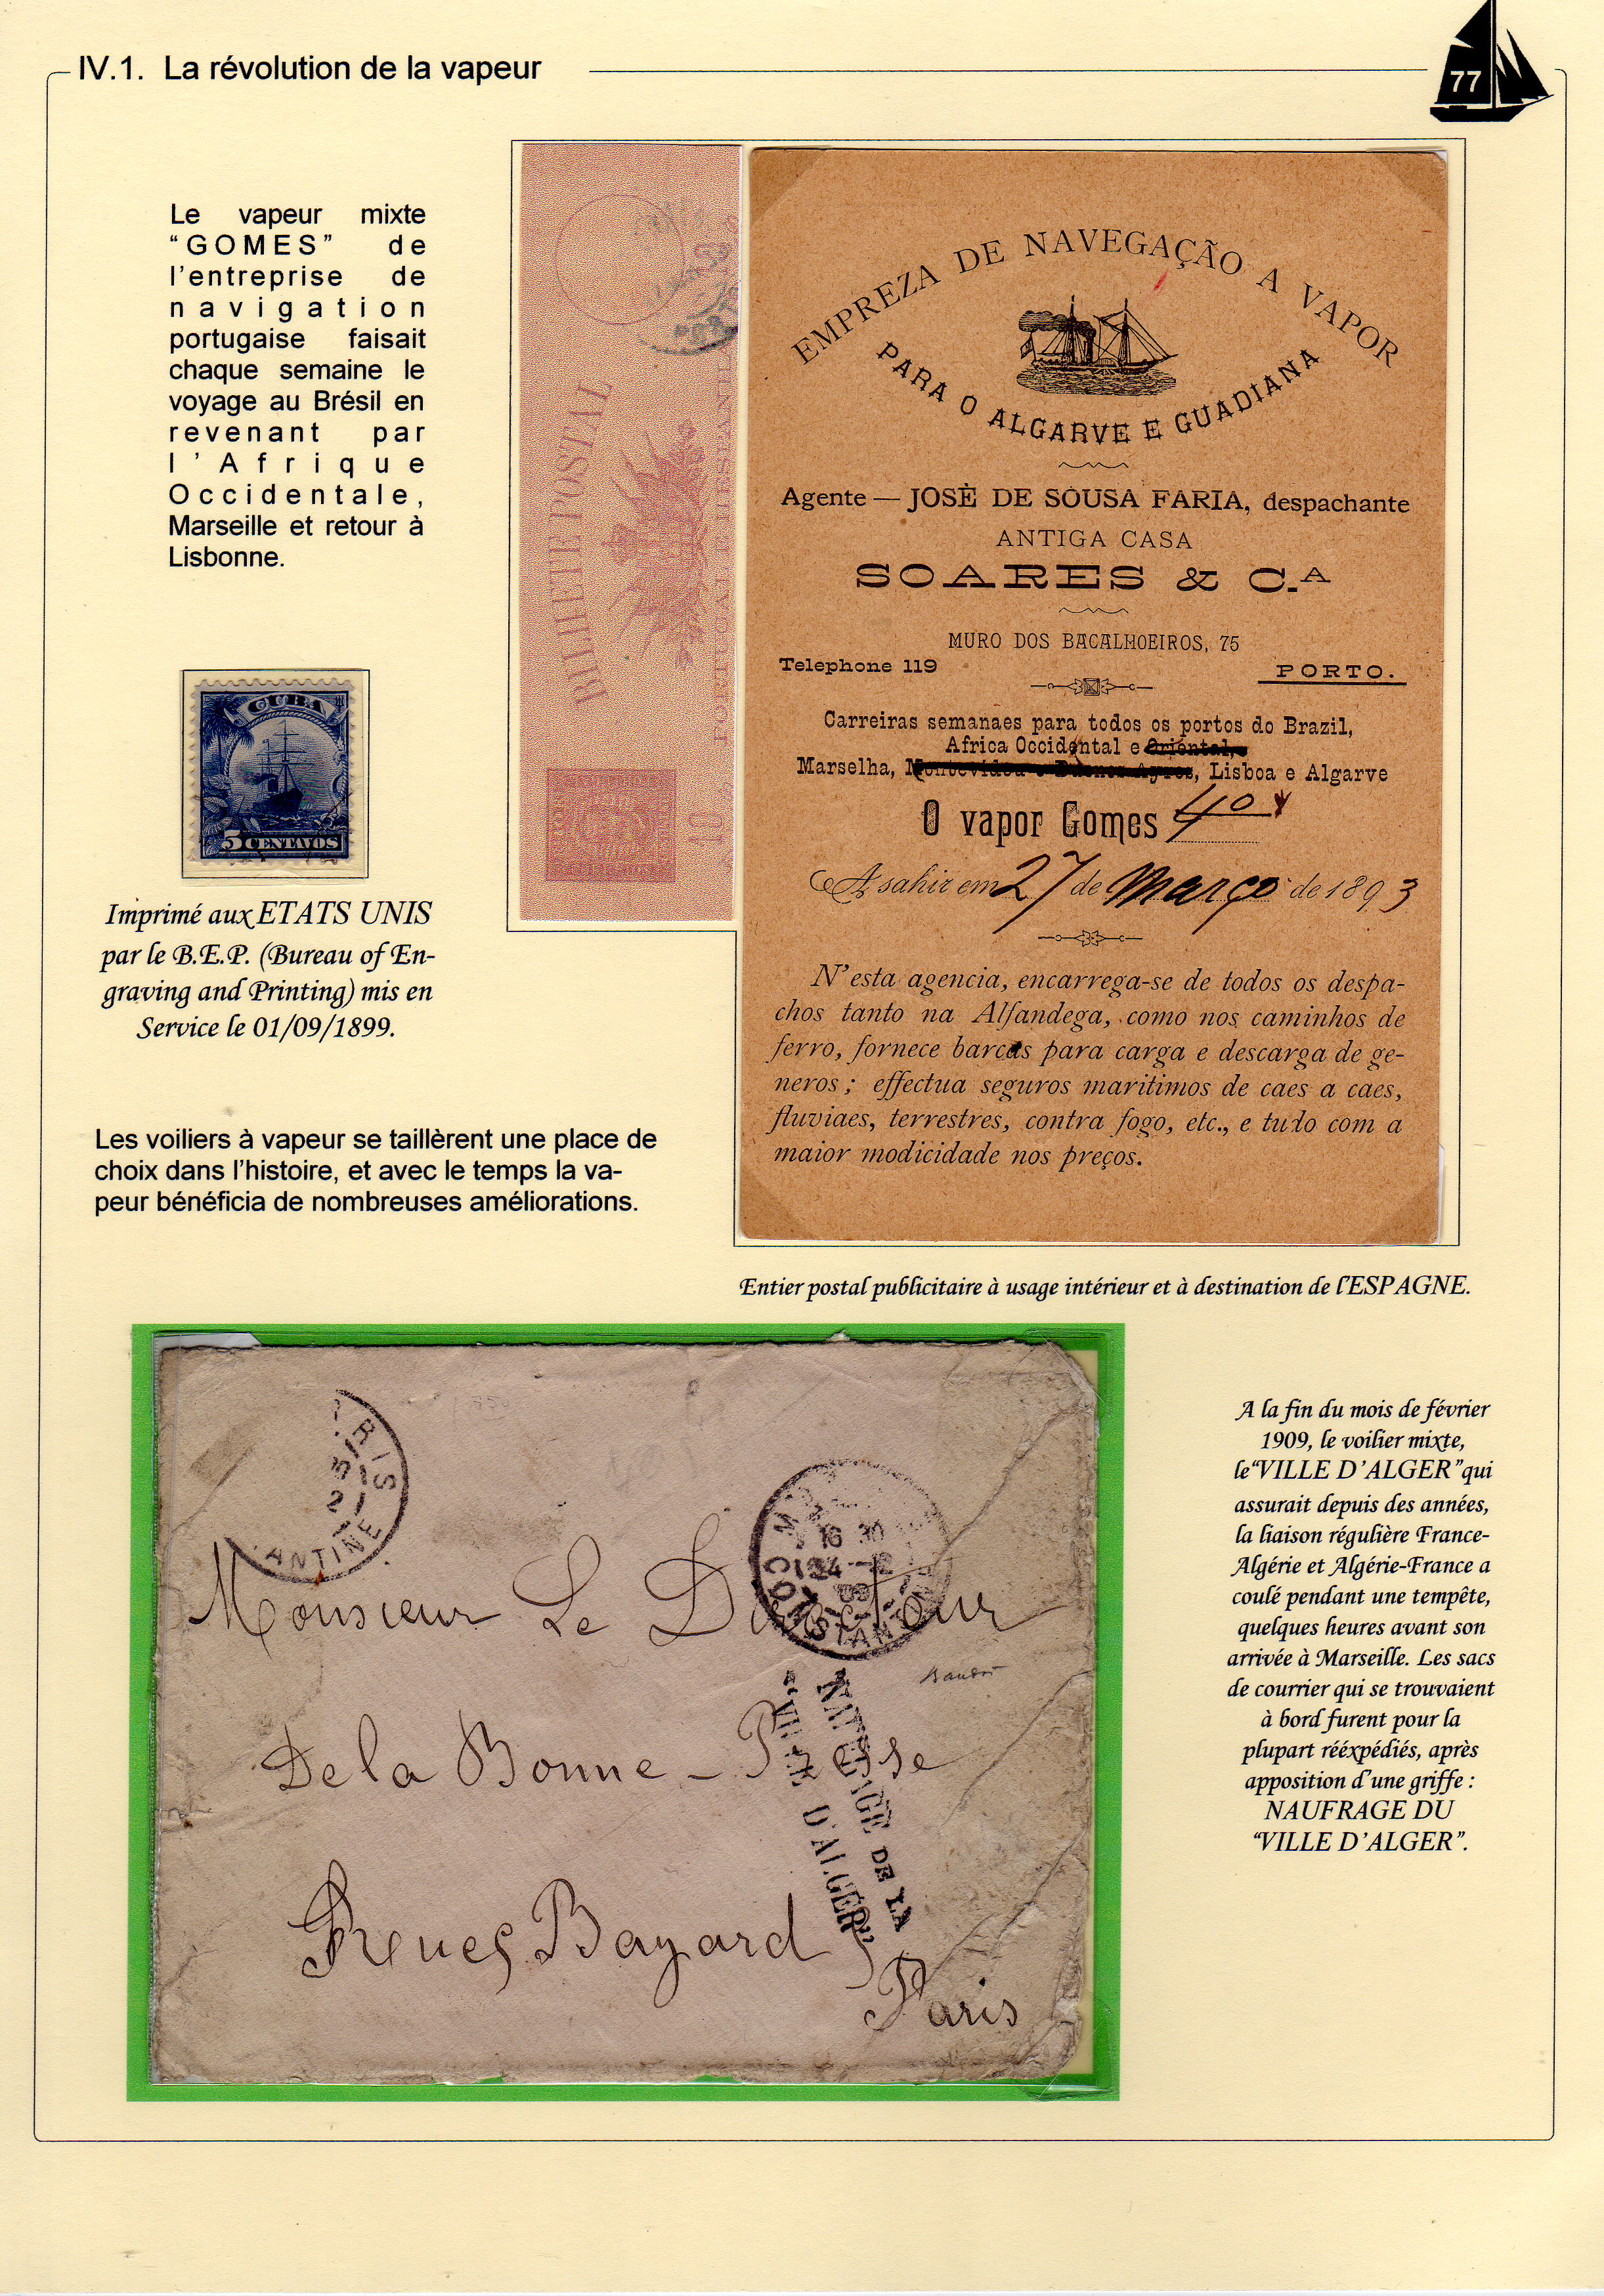 IV.1. La révolution de la vapeur
77
Le vapeur mixte
“GOMES” de
l’entreprise de
navigation
portugaise faisait
chaque semaine le
voyage au Brésil en
revenant par
l’Afrique
Occidentale,
Marseille et retour à
Lisbonne.
BILHETE POSTAL
PORTUGAL E HESPANHA
10
EMPREZA DE NAVEGAÇÃO A VAPOR
PARA O ALGARVE E GUADIANA
Agente — JOSÈ DE SOUSA FARIA, despachante
ANTIGA CASA
SOARES & C.A
MURO DOS BACALHOEIROS, 75
Telephone 119
PORTO.
Carreiras semanaes para todos os portos do Brazil,
Africa Occidental e Oriental,
Marselha, Montevideu e Buenos Ayres, Lisboa e Algarve
O vapor Gomes 4º
A sahir em 27 de Março de 1893
N’esta agencia, encarrega-se de todos os despa-
chos tanto na Alfandega, como nos caminhos de
ferro, fornece barcas para carga e descarga de ge-
neros; effectua seguros maritimos de caes a caes,
fluviaes, terrestres, contra fogo, etc., e tudo com a
maior modicidade nos preços.
CUBA
5 CENTAVOS
Imprimé aux ETATS UNIS
par le B.E.P. (Bureau of En-
graving and Printing) mis en
Service le 01/09/1899.
Les voiliers à vapeur se taillèrent une place de
choix dans l’histoire, et avec le temps la va-
peur bénéficia de nombreuses améliorations.
Entier postal publicitaire à usage intérieur et à destination de l’ESPAGNE.
ANTINE
16 30
24
CONSTANTINE
Monsieur Le Directeur
De la Bonne - Presse
Rue Bayard
Paris
NAUFRAGE DE LA
“VILLE D’ALGER”
A la fin du mois de février
1909, le voilier mixte,
le“VILLE D’ALGER”qui
assurait depuis des années,
la liaison régulière France-
Algérie et Algérie-France a
coulé pendant une tempête,
quelques heures avant son
arrivée à Marseille. Les sacs
de courrier qui se trouvaient
à bord furent pour la
plupart rééxpédiés, après
apposition d’une griffe :
NAUFRAGE DU
“VILLE D’ALGER”.